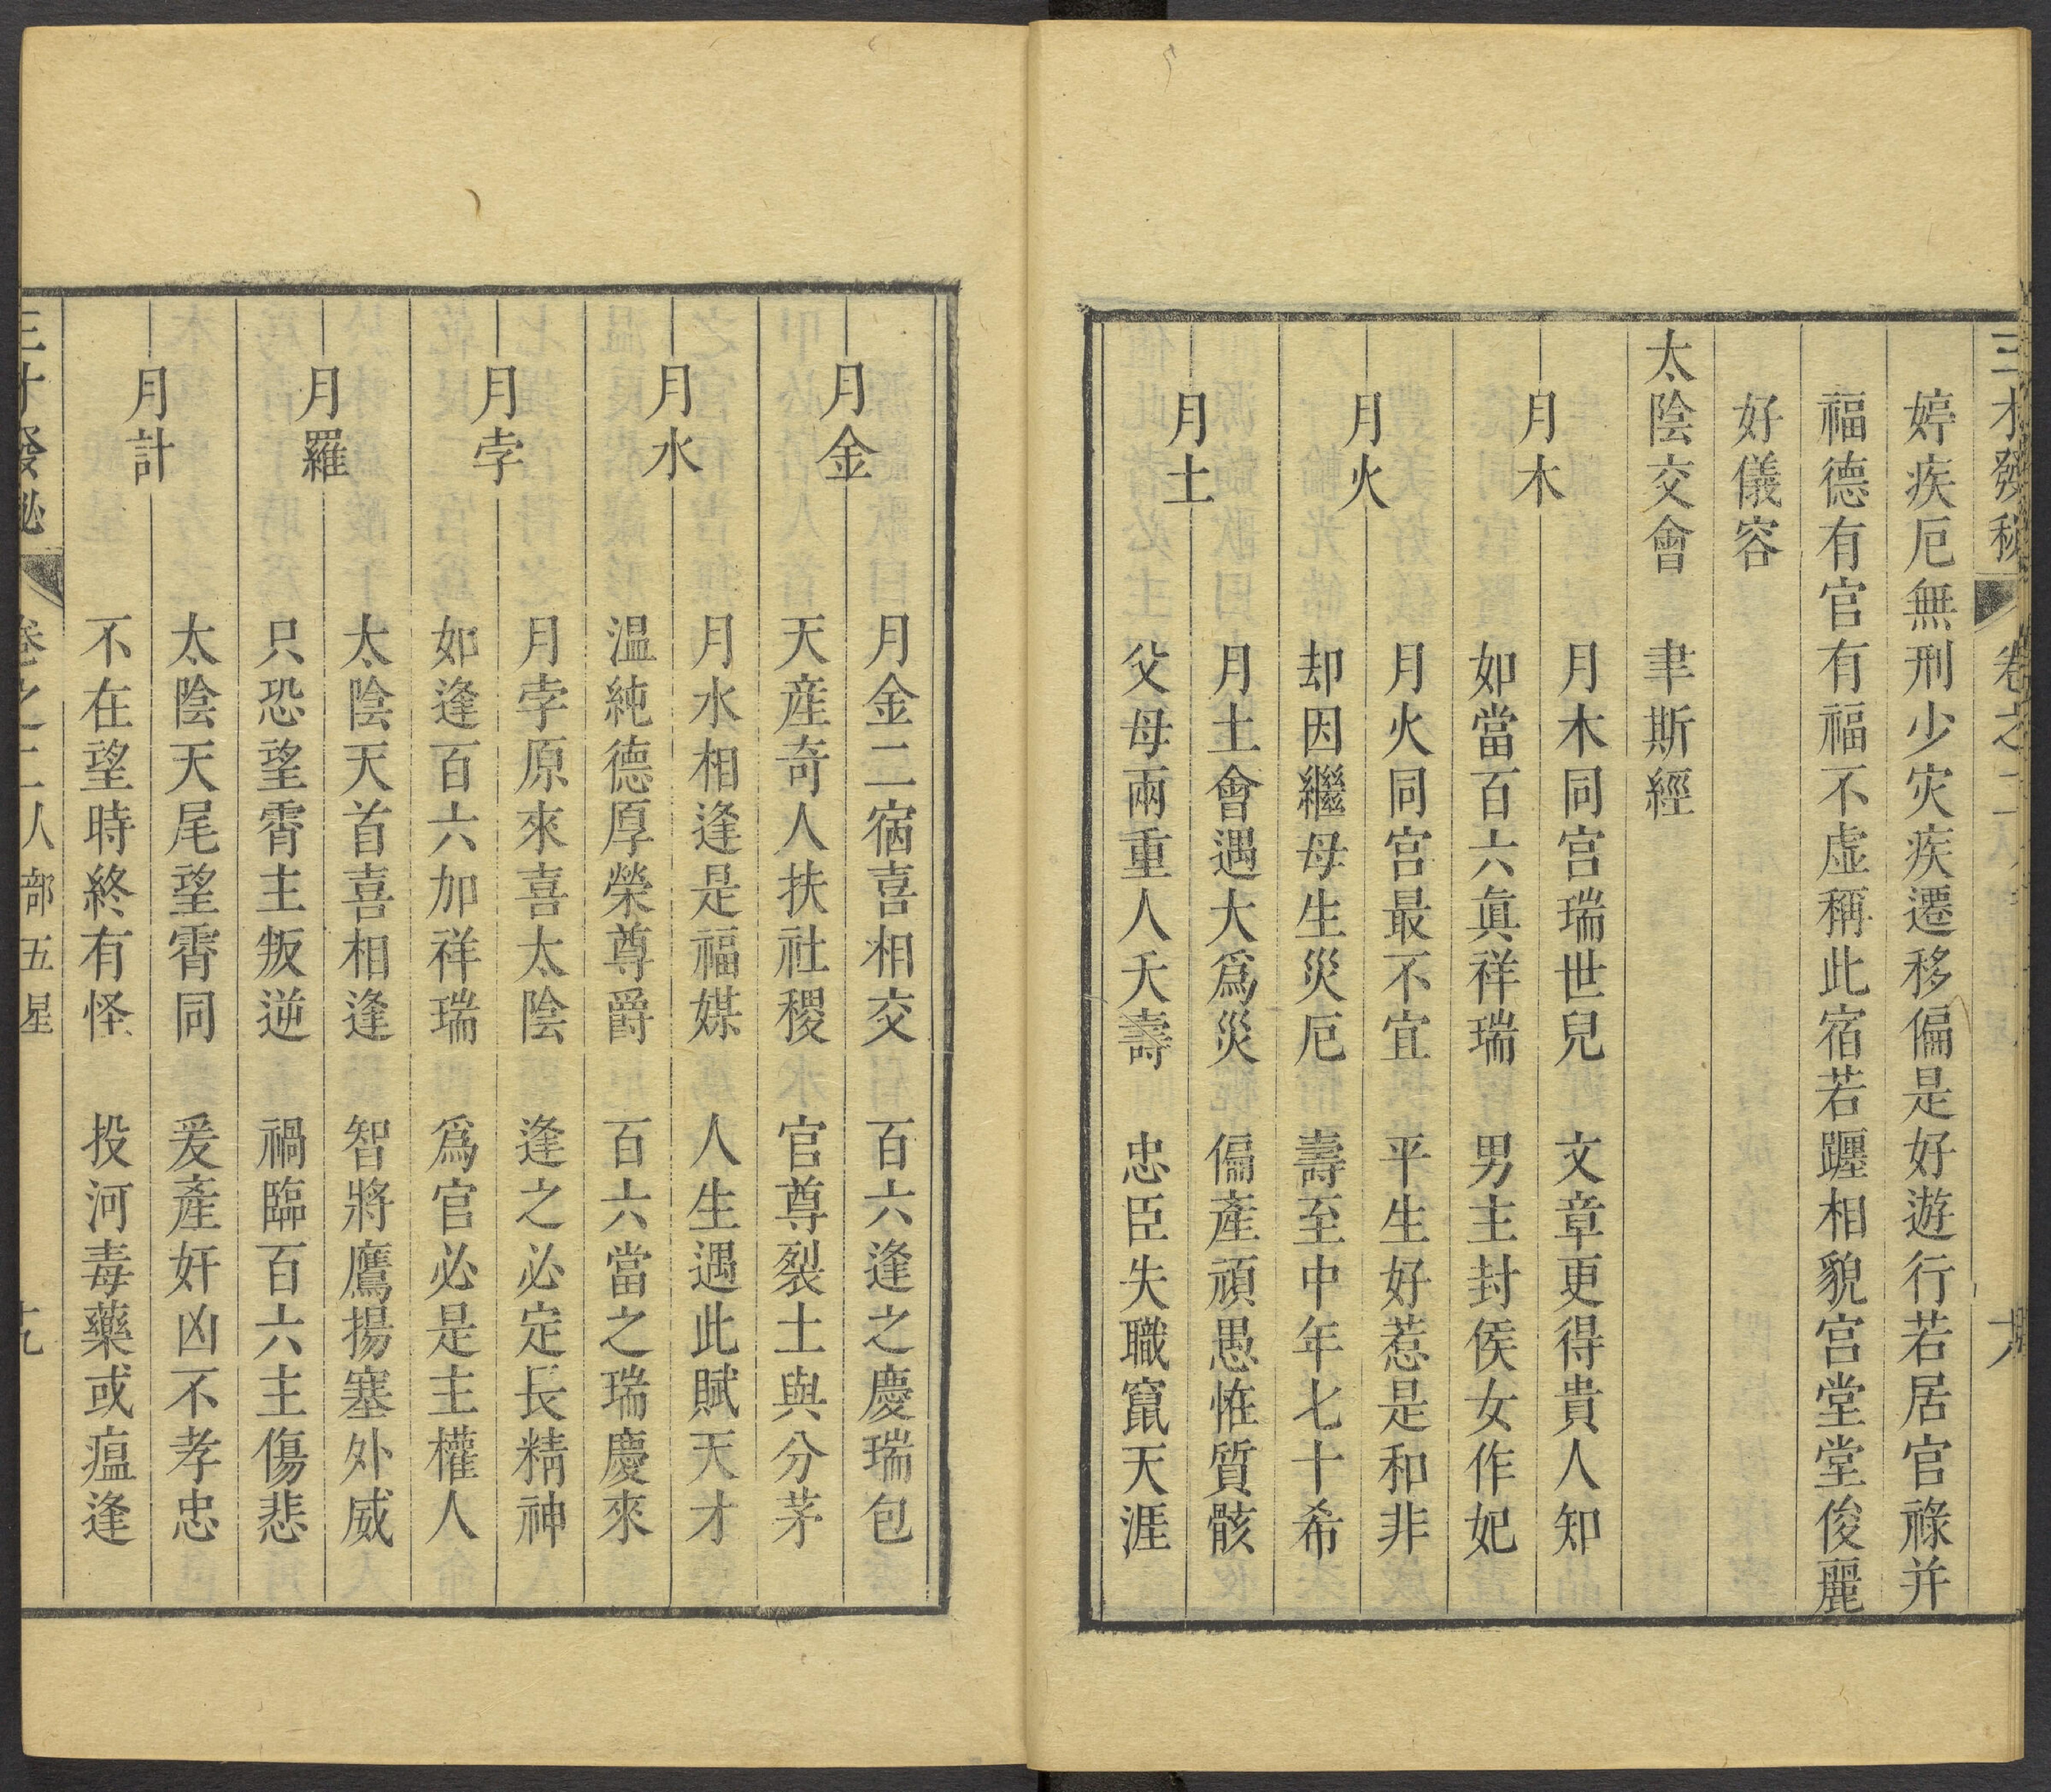 三才發秘 卷之二 人 十八
婷疾厄無刑少灾疾遷移偏是好遊行若居官祿并
福德有官有福不虛稱此宿若躔相貌宮堂堂俊麗
好儀容
太陰交會 聿斯經
月木
月木同宮瑞世兒 文章更得貴人知
如當百六眞祥瑞 男主封侯女作妃
月火
月火同宮最不宜 平生好惹是和非
却因繼母生災厄 壽至中年七十希
月土
月土會遇大爲災 偏產頑愚惟質骸
父母兩重人夭壽 忠臣失職竄天涯
月金
月金二宿喜相交 百六逢之慶瑞包
天產奇人扶社稷 官尊裂土與分茅
月水
月水相逢是福媒 人生遇此賦天才
温純德厚榮尊爵 百六當之瑞慶來
月孛
月孛原來喜太陰 逢之必定長精神
如逢百六加祥瑞 爲官必是主權人
月羅
太陰天首喜相逢 智將鷹揚塞外威
只恐望霄主叛逆 禍臨百六主傷悲
月計
太陰天尾望霄同 爰產奸凶不孝忠
不在望時終有怪 投河毒藥或瘟逢
三才發秘 卷之二 人部五星 十九